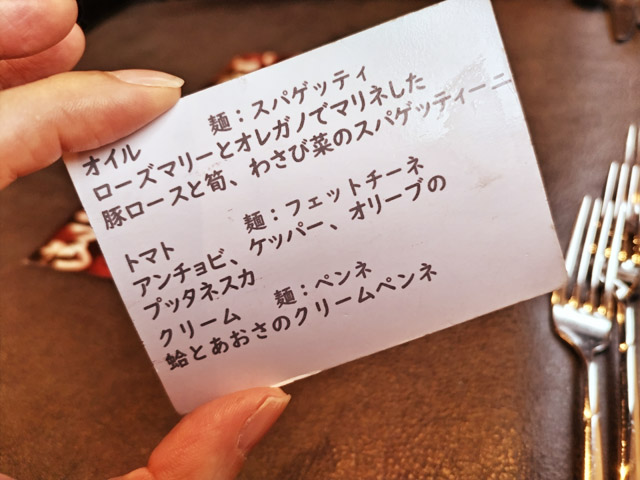 オイル　　麺：スパゲッティ
ローズマリーとオレガノでマリネした
豚ロースと筍、わさび菜のスパゲッティーニ
トマト　　麺：フェットチーネ
アンチョビ、ケッパー、オリーブの
プッタネスカ
クリーム　　麺：ペンネ
蛤とあおさのクリームペンネ